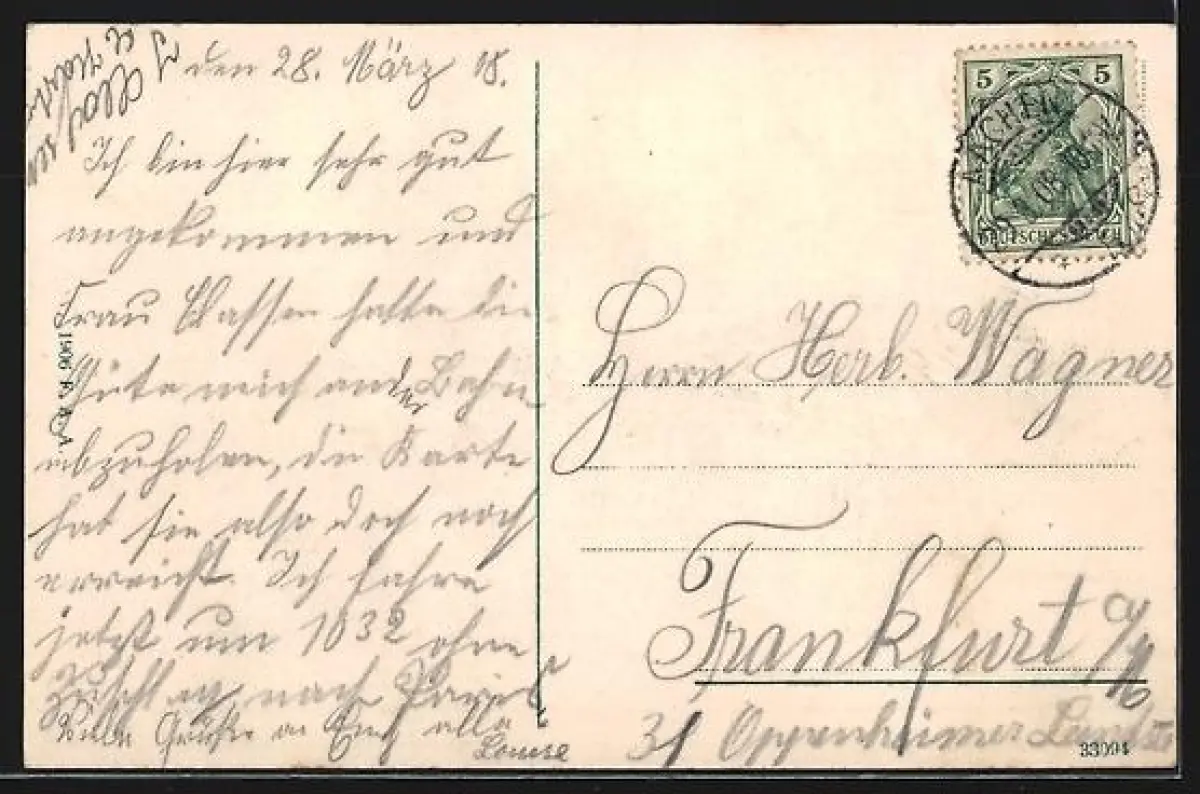 den 28. März 08.
Ich bin hier sehr gut
angekommen und
Frau Classen hatte die
Güte mich an der Bahn
abzuholen, die Karte
hat sie also doch noch
erreicht. Ich fahre
jetzt um 1032 ohne
Zuschlag nach Paris
Viele Grüße an Euch alle
Louise
1906 F. A. A.
5 5
DEUTSCHES REICH
AACHEN
Herrn Herb. Wagner
Frankfurt a/M
31 Oppenheimer Landstr
33094